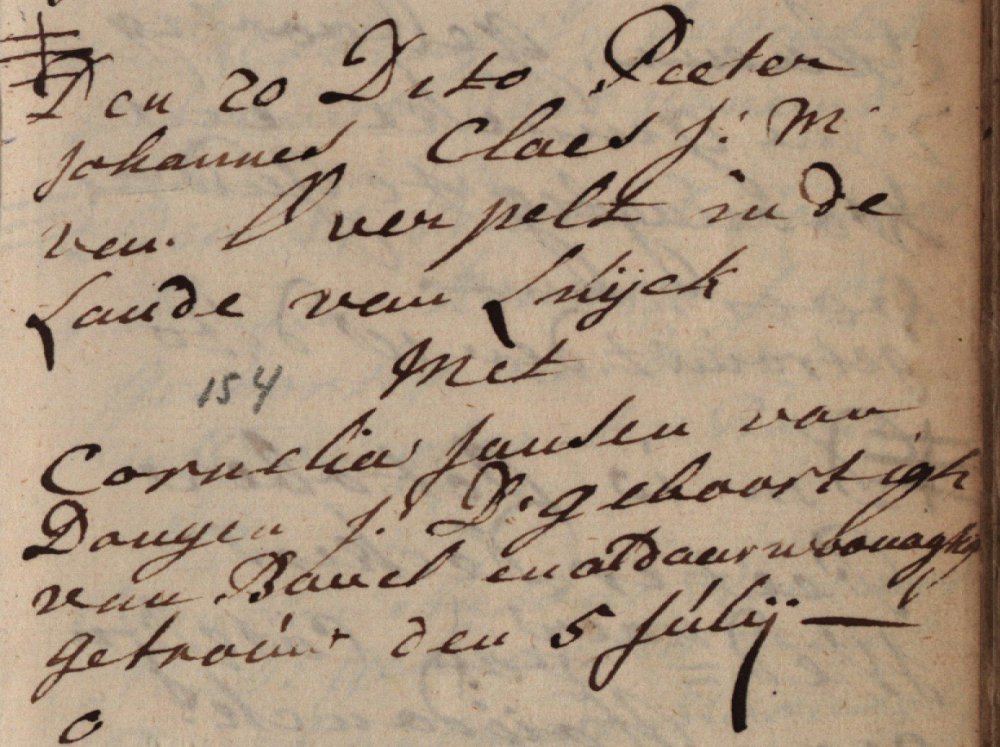 Den 20 Dito Peeter
Johannes Claes J: M:
van Overpelt in de
Lande van Luijck
Met
154
Cornelia Jansen van
Dongen J: D: geboortigh
van Bavel en aldaar woonagtig
getrouwt den 5 Julij —